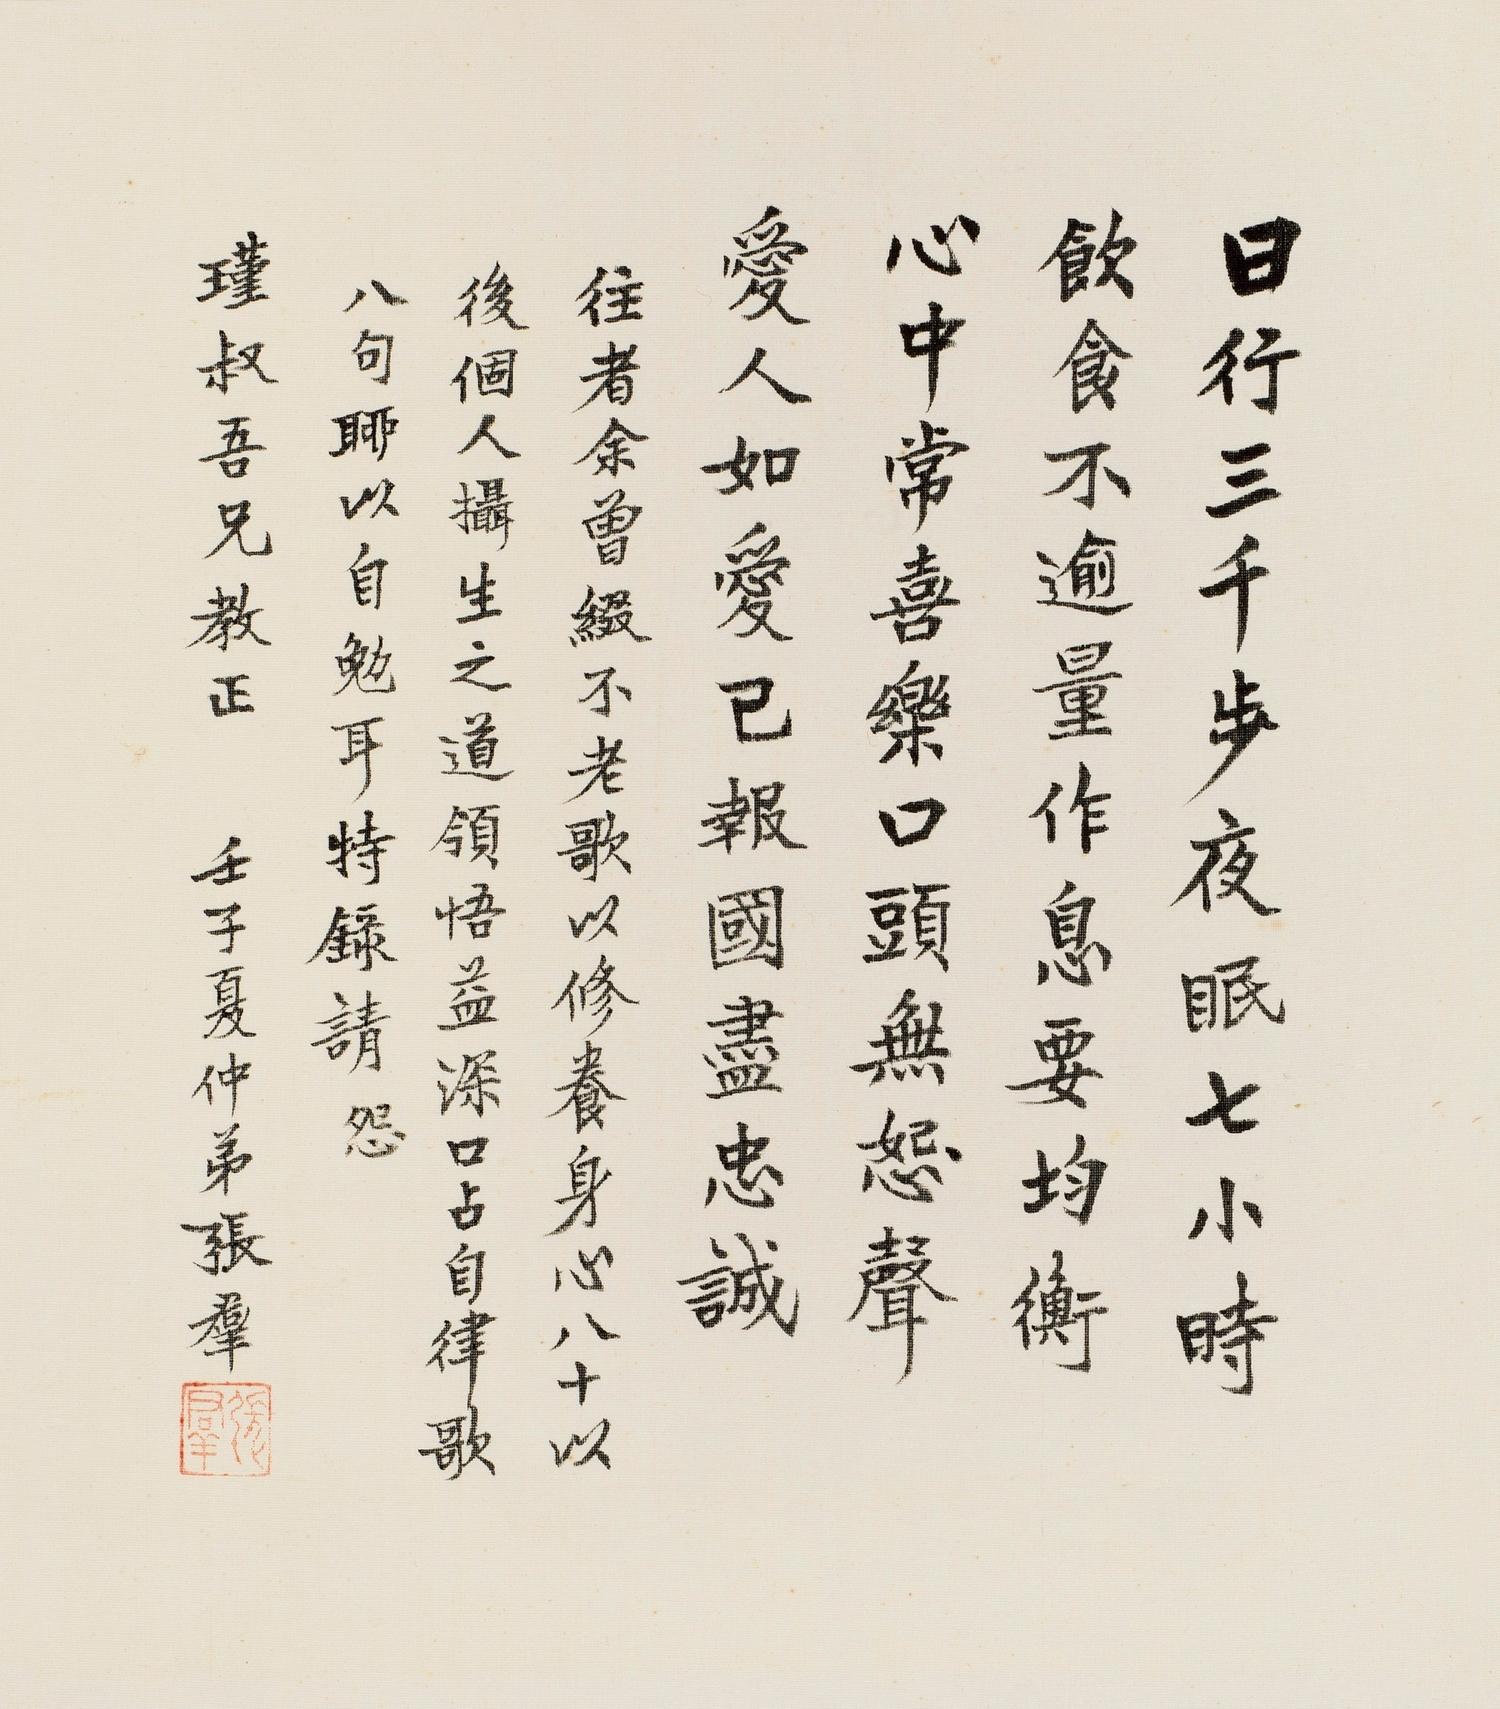 日行三千步夜眠七小時
飲食不逾量作息要均衡
心中常喜樂口頭無恕聲
愛人如愛己報國盡忠誠
往者余曾綴不老歌以修養身心八十以
後個人攝生之道領悟益深口占自律歌
八句聊以自勉耳特錄請 怨
瑾叔吾兄教正 壬子夏仲弟張羣
張羣